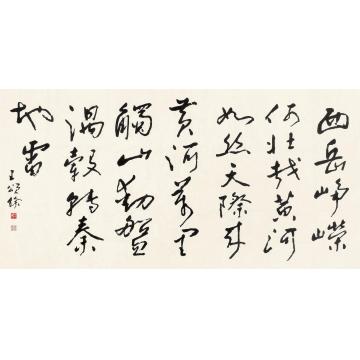 西岳峥嵘
何壮哉黄河
如丝天际来
黄河万里
触山动盘
涡毂转秦
地雷
王颂余